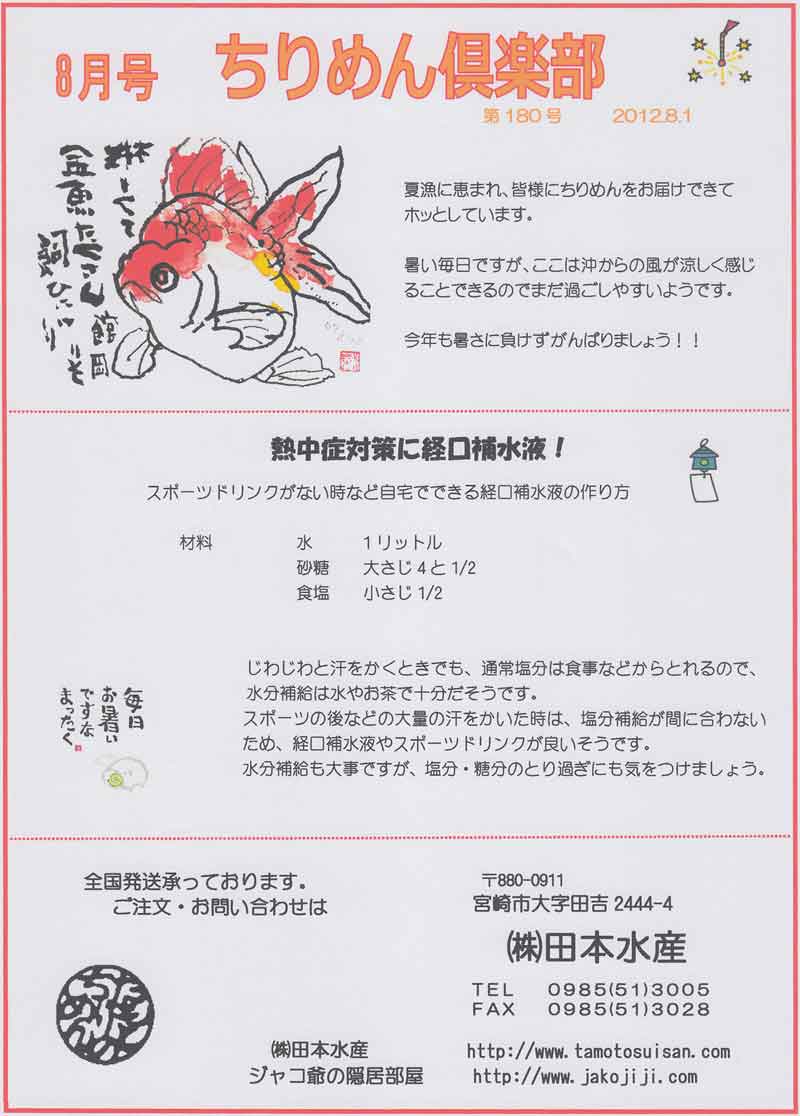 8月号
ちりめん倶楽部
第180号 2012.8.1
金魚たくさん
夏漁に恵まれ、皆様にちりめんをお届けできて
ホッとしています。
暑い毎日ですが、ここは沖からの風が涼しく感じ
ることできるのでまだ過ごしやすいようです。
今年も暑さに負けずがんばりましょう！！
熱中症対策に経口補水液！
スポーツドリンクがない時など自宅でできる経口補水液の作り方
材料 水 1リットル
砂糖 大さじ4と1/2
食塩 小さじ1/2
じわじわと汗をかくときでも、通常塩分は食事などからとれるので、
水分補給は水やお茶で十分だそうです。
スポーツの後などの大量の汗をかいた時は、塩分補給が間に合わない
ため、経口補水液やスポーツドリンクが良いそうです。
水分補給も大事ですが、塩分・糖分のとり過ぎにも気をつけましょう。
毎日
お暑い
ですな
まったく
全国発送承っております。
ご注文・お問い合わせは
〒880-0911
宮崎市大字田吉2444-4
㈱田本水産
TEL 0985(51)3005
FAX 0985(51)3028
㈱田本水産 http://www.tamotosuisan.com
ジャコ爺の隠居部屋 http://www.jakojiji.com